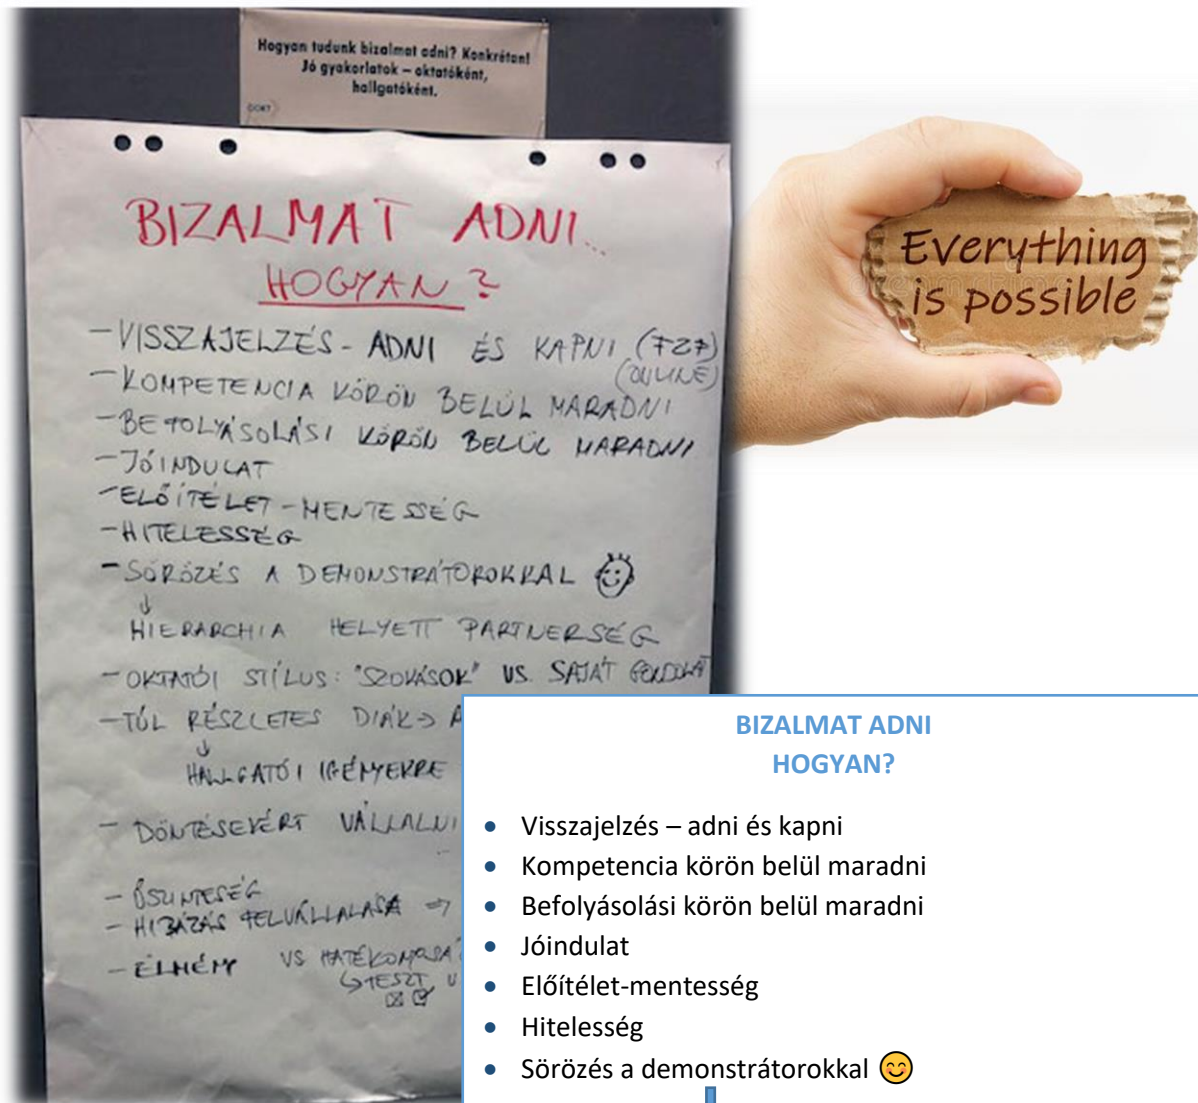 Hogyan tudunk bizalmat adni? Konkrétan!
Jó gyakorlatok – oktatóként,
hallgatóként.
BIZALMAT ADNI...
HOGYAN?
- VISSZAJELZÉS - ADNI ÉS KAPNI (F2F)
(ONLINE)
- KOMPETENCIA KÖRÖN BELÜL MARADNI
- BEFOLYÁSOLÁSI KÖRÖN BELÜL MARADNI
- JÓINDULAT
- ELŐÍTÉLET - MENTESSÉG
- HITELESSÉG
- SÖRÖZÉS A DEMONSTRÁTOROKKAL
↓
HIERARCHIA HELYETT PARTNERSÉG
- OKTATÓI STÍLUS: "SZOKÁSOK" VS. SAJÁT GONDOLAT
- TÚL RÉSZLETES DIÁK →
↓
HALLGATÓI IGÉNYEKRE
- DÖNTÉSEKÉRT VÁLLALNI
- ŐSZINTESÉG
- HIBÁZÁS FELVÁLLALÁSA ⇒
- ÉLMÉNY VS HATÉKONYSÁ
↳ TESZT
Everything
is possible
BIZALMAT ADNI
HOGYAN?
• Visszajelzés – adni és kapni
• Kompetencia körön belül maradni
• Befolyásolási körön belül maradni
• Jóindulat
• Előítélet-mentesség
• Hitelesség
• Sörözés a demonstrátorokkal 😊